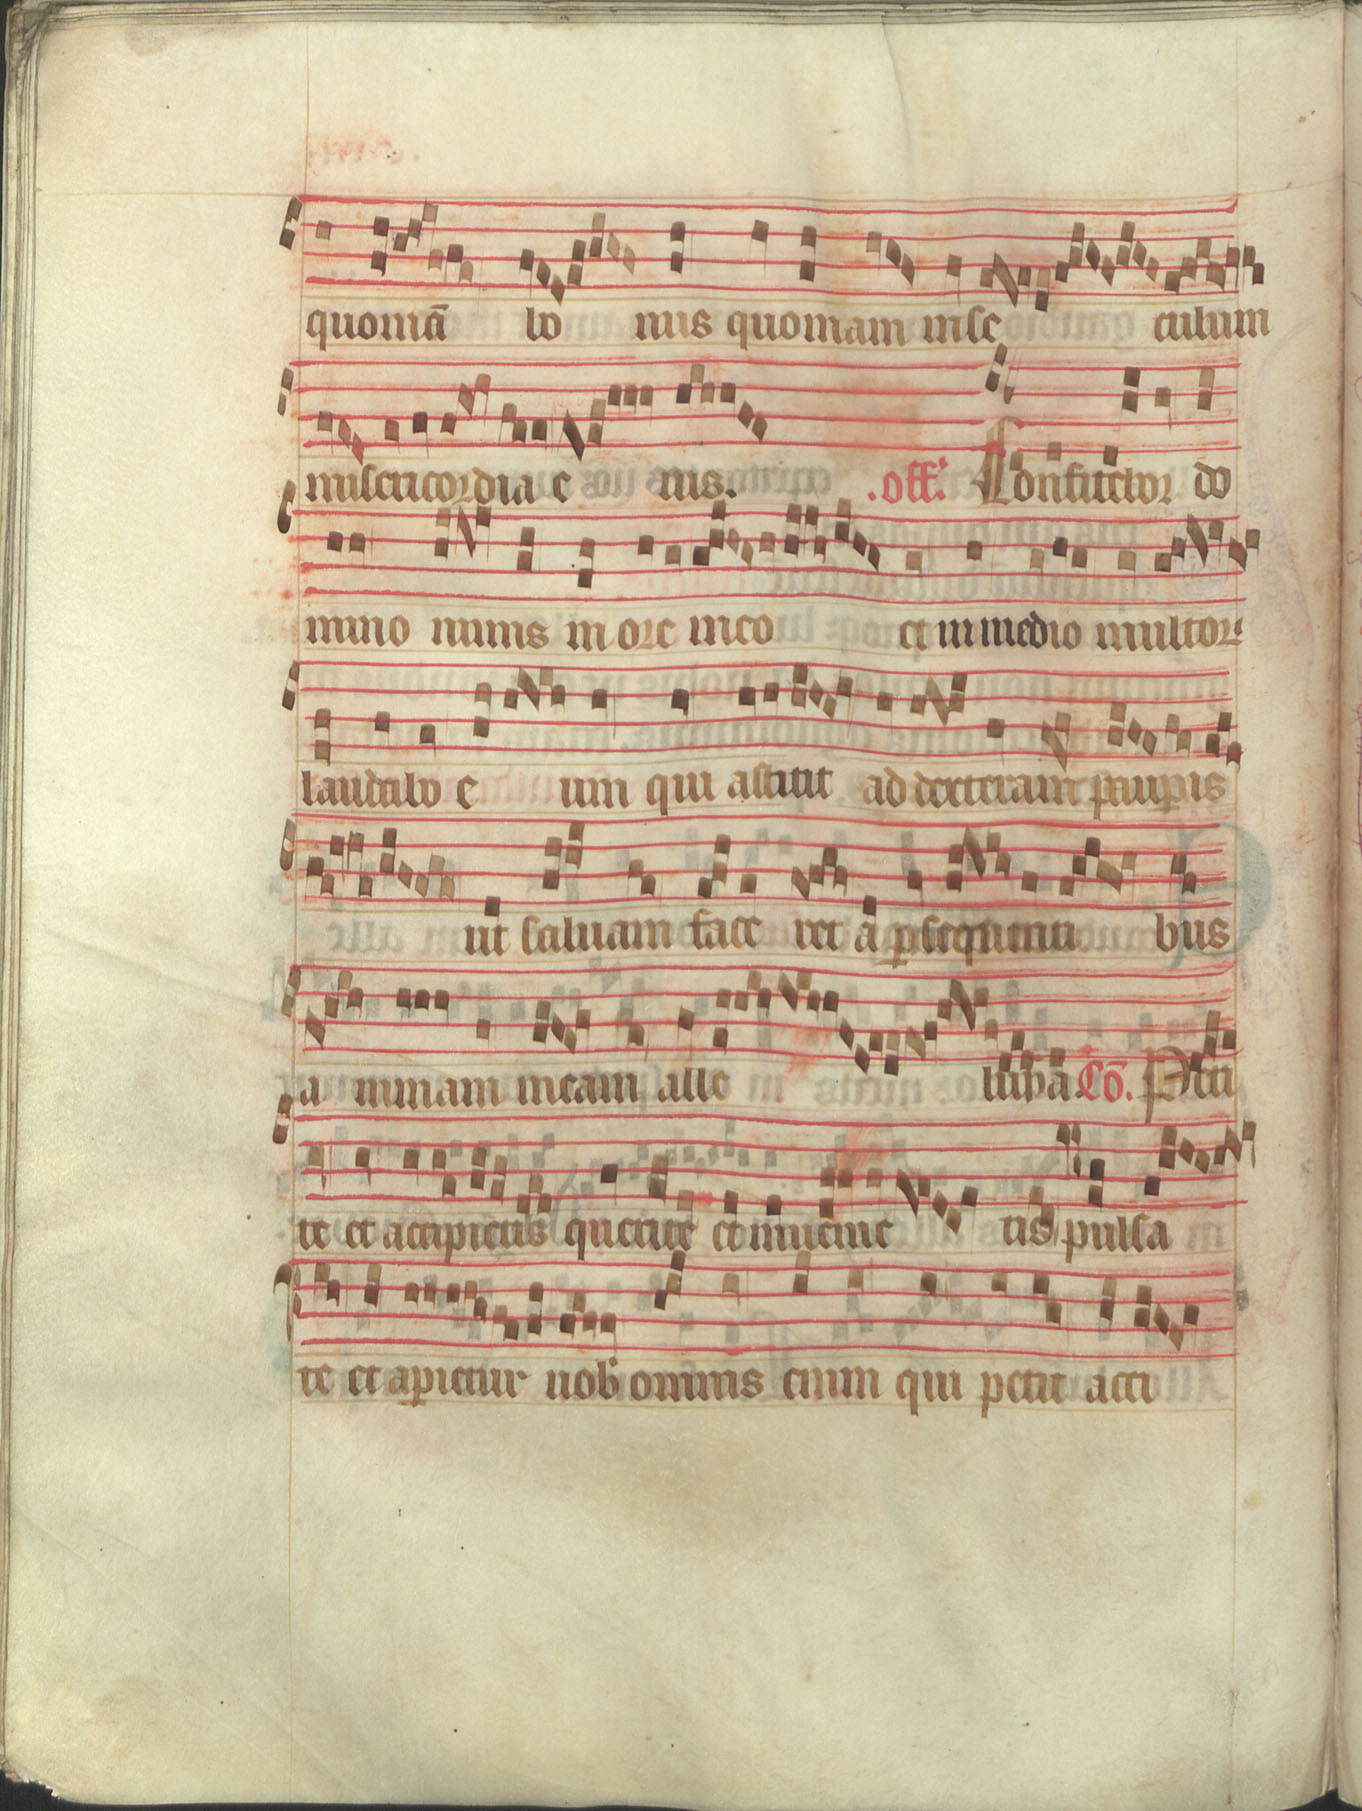 quoniā bo nus quoniam inse culum
misericordia e ius. .off. Confitebor do
mino nimis in ore meo et in medio multor
laudabo e um qui astitit ad dexteram paupis
ut saluam face ret a psequenti bus
a nimam meam alle luya Co. Peti
te et accipietis querite et inuenie tis pulsa
te et apietur uob omnis enim qui petit acci